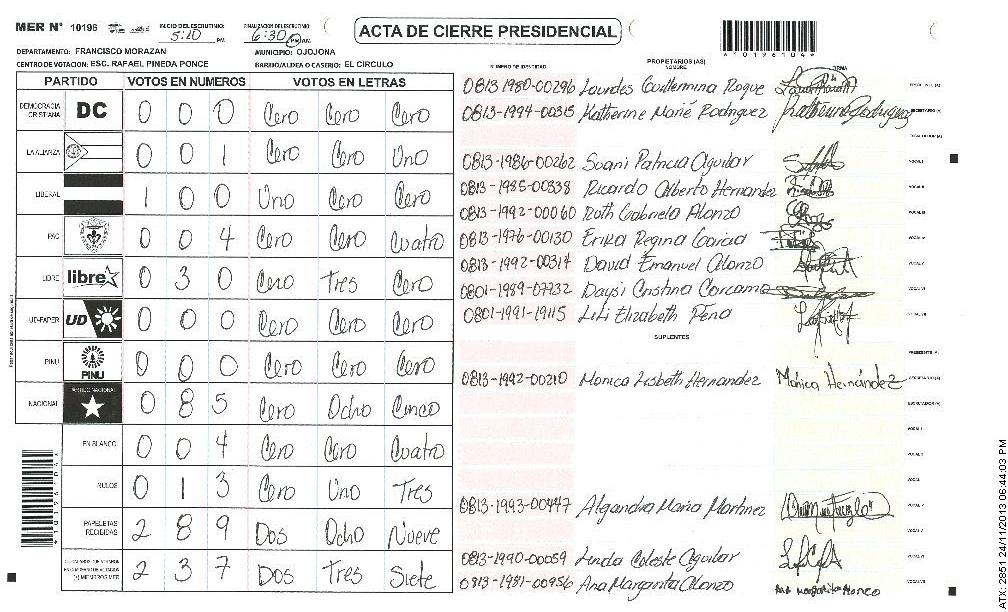 MER N° 10196 INICIO DEL ESCRUTINIO: 5:20 PM FINALIZACION DEL ESCRUTINIO: 6:30 PM
ACTA DE CIERRE PRESIDENCIAL
*10196104*
DEPARTAMENTO: FRANCISCO MORAZAN MUNICIPIO: OJOJONA
CENTRO DE VOTACION: ESC. RAFAEL PINEDA PONCE BARRIO/ALDEA O CASERIO: EL CIRCULO
PARTIDO VOTOS EN NUMEROS VOTOS EN LETRAS
DEMOCRACIA CRISTIANA DC 0 0 0 Cero Cero Cero
LA ALIANZA 0 0 1 Cero Cero Uno
LIBERAL 1 0 0 Uno Cero Cero
PAC 0 0 4 Cero Cero Cuatro
LIBRE libre 0 3 0 Cero Tres Cero
UD-FAPER UD 0 0 0 Cero Cero Cero
PINU PINU 0 0 0 Cero Cero Cero
NACIONAL PARTIDO NACIONAL 0 8 5 Cero Ocho Cinco
EN BLANCO 0 0 4 Cero Cero Cuatro
NULOS 0 1 3 Cero Uno Tres
PAPELETAS RECIBIDAS 2 8 9 Dos Ocho Nueve
2 3 7 Dos Tres Siete
NUMERO DE IDENTIDAD PROPIETARIOS (AS) NOMBRE FIRMA
0813-1980-00296 Lourdes Guillermina Roque
0813-1994-00315 Katherine Marié Rodriguez Katherine Rodriguez
0813-1986-00262 Suani Patricia Aguilar
0813-1985-00338 Ricardo Alberto Hernandez
0813-1992-00060 Ruth Gabriela Alonzo
0813-1976-00130 Erika Regina
0813-1992-00317 David Emanuel Alonzo
0801-1989-07232 Daysi Cristina Carcamo
0801-1991-19115 Lili Elizabeth Pena
SUPLENTES
0813-1992-00210 Monica Lisbeth Hernandez Mónica Hernández
0813-1993-00447 Alejandra Maria Martinez
0813-1990-00059 Linda Celeste Aguilar
0813-1981-00956 Ana Margarita Alonzo Ana Margarita Alonzo
ATX-2951 24/11/2013 06:44:03 PM